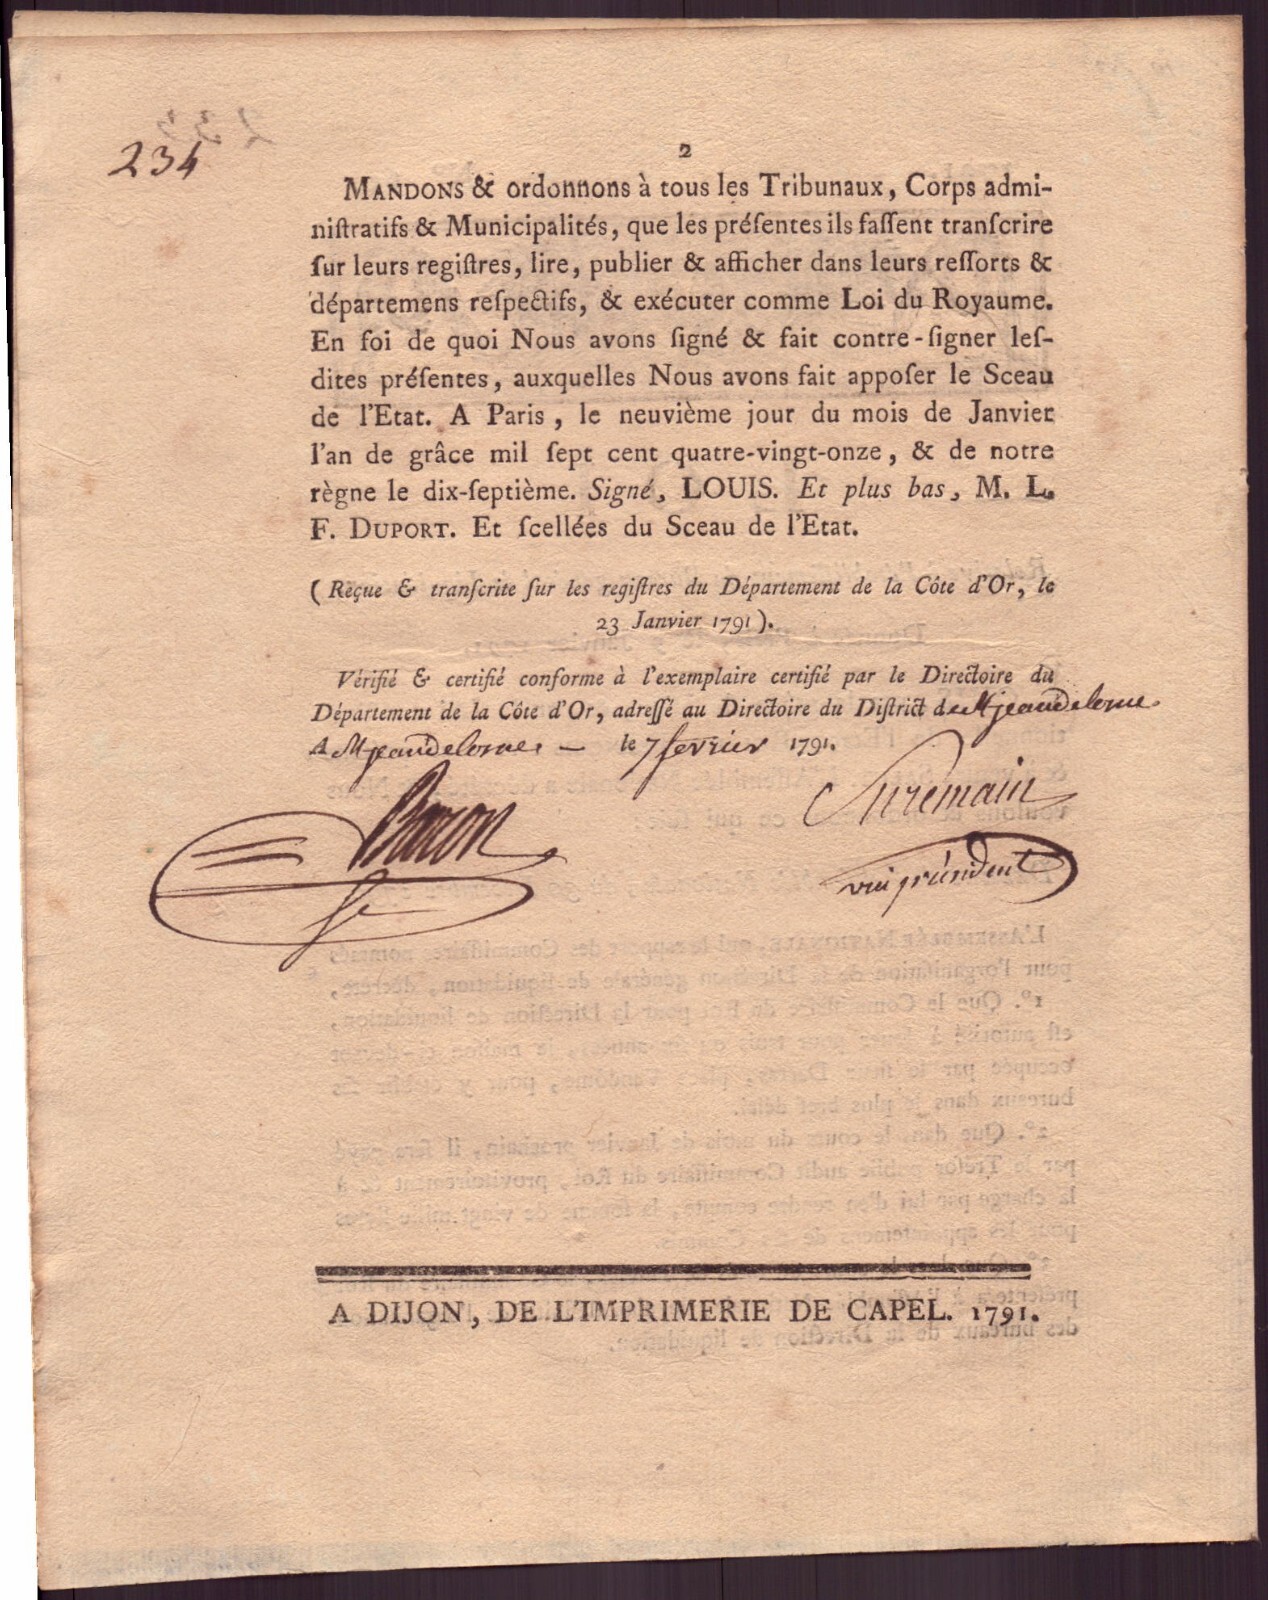 234
2
MANDONS & ordonnons à tous les Tribunaux, Corps admi-
niſtratifs & Municipalités, que les préſentes ils faſſent tranſcrire
ſur leurs regiſtres, lire, publier & afficher dans leurs reſſorts &
départemens reſpectifs, & exécuter comme Loi du Royaume.
En foi de quoi Nous avons ſigné & fait contre-ſigner leſ-
dites préſentes, auxquelles Nous avons fait appoſer le Sceau
de l'Etat. A Paris, le neuvième jour du mois de Janvier
l'an de grâce mil ſept cent quatre-vingt-onze, & de notre
règne le dix-ſeptième. Signé, LOUIS. Et plus bas, M. L.
F. DUPORT. Et ſcellées du Sceau de l'Etat.
(Reçue & tranſcrite ſur les regiſtres du Département de la Côte d'Or, le
23 Janvier 1791).
Vérifié & certifié conforme à l'exemplaire certifié par le Directoire du
Département de la Côte d'Or, adreſſé au Directoire du Diſtrict de St jeandelosne
A St jeandelosne, — le 7 fevrier 1791.
Suremain
Baron
vice président
A DIJON, DE L'IMPRIMERIE DE CAPEL. 1791.